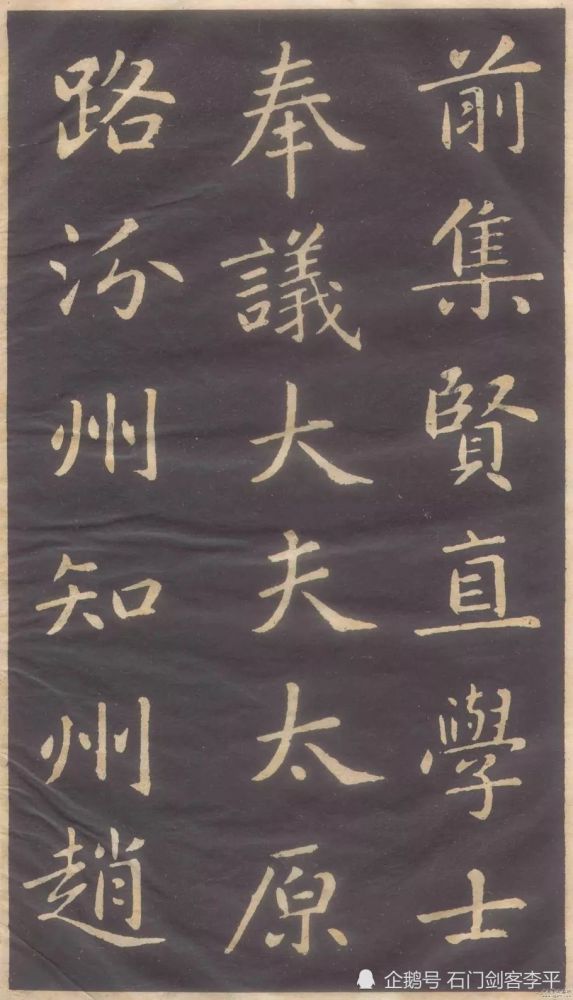 前集賢直學士
奉議大夫太原
路汾州知州趙
企鹅号 石门剑客李平